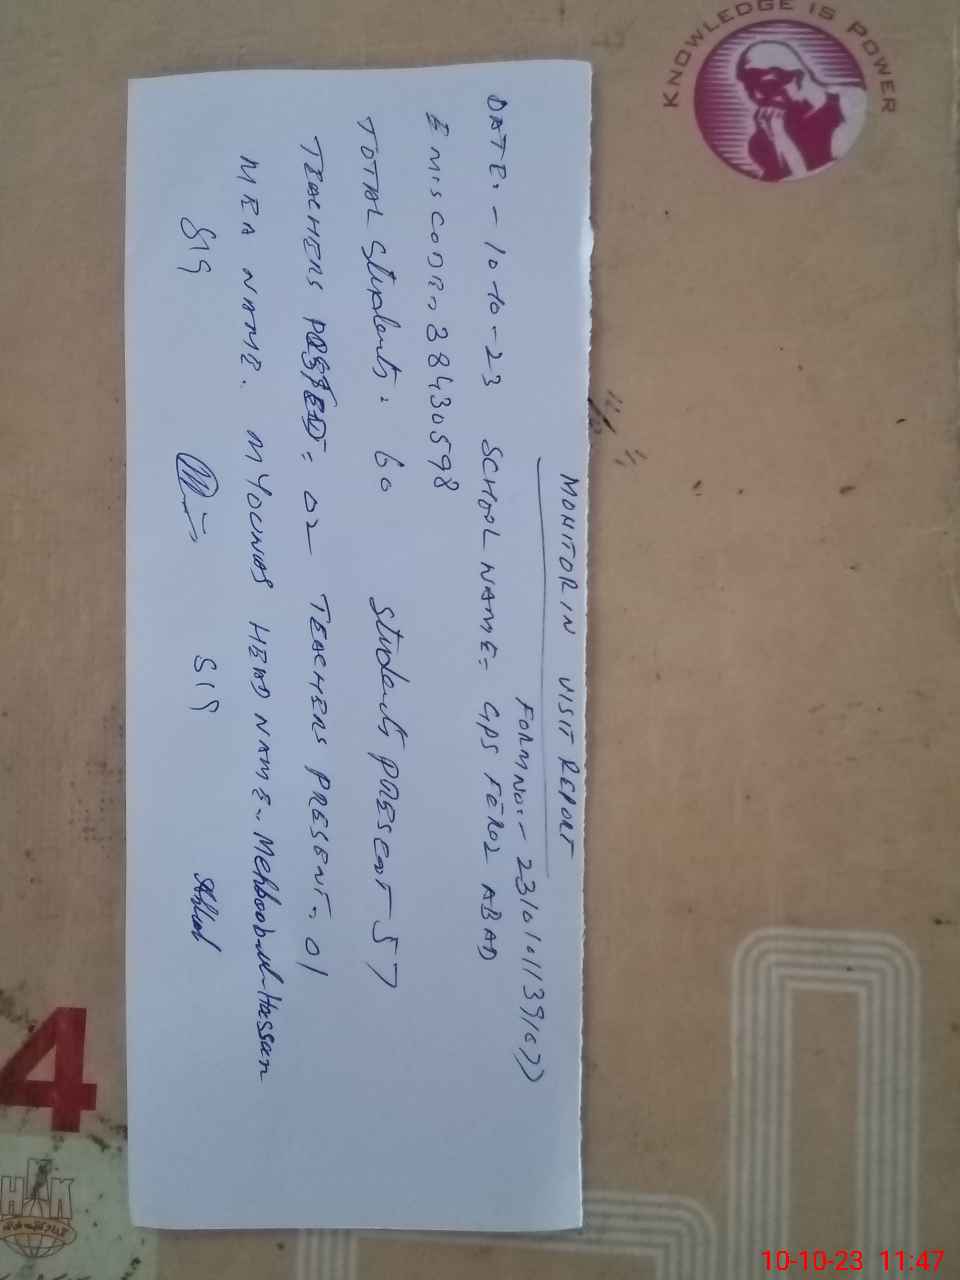 MONITORIN VISIT REPORT
FORM NO:- 
DATE:- 10-10-23 SCHOOL NAME= GPS FEROZ ABAD
EMIS CODE= 38430598
TOTAL Students= 60 Students PRESENT- 57
TEACHERS POSTED= 02 TEACHERS PRESENT= 01
MEA NAME. M YOUNAS HEAD NAME= Mehboob-ul-Hassan
SIG SIG
KNOWLEDGE IS POWER
4
10-10-23 11:47